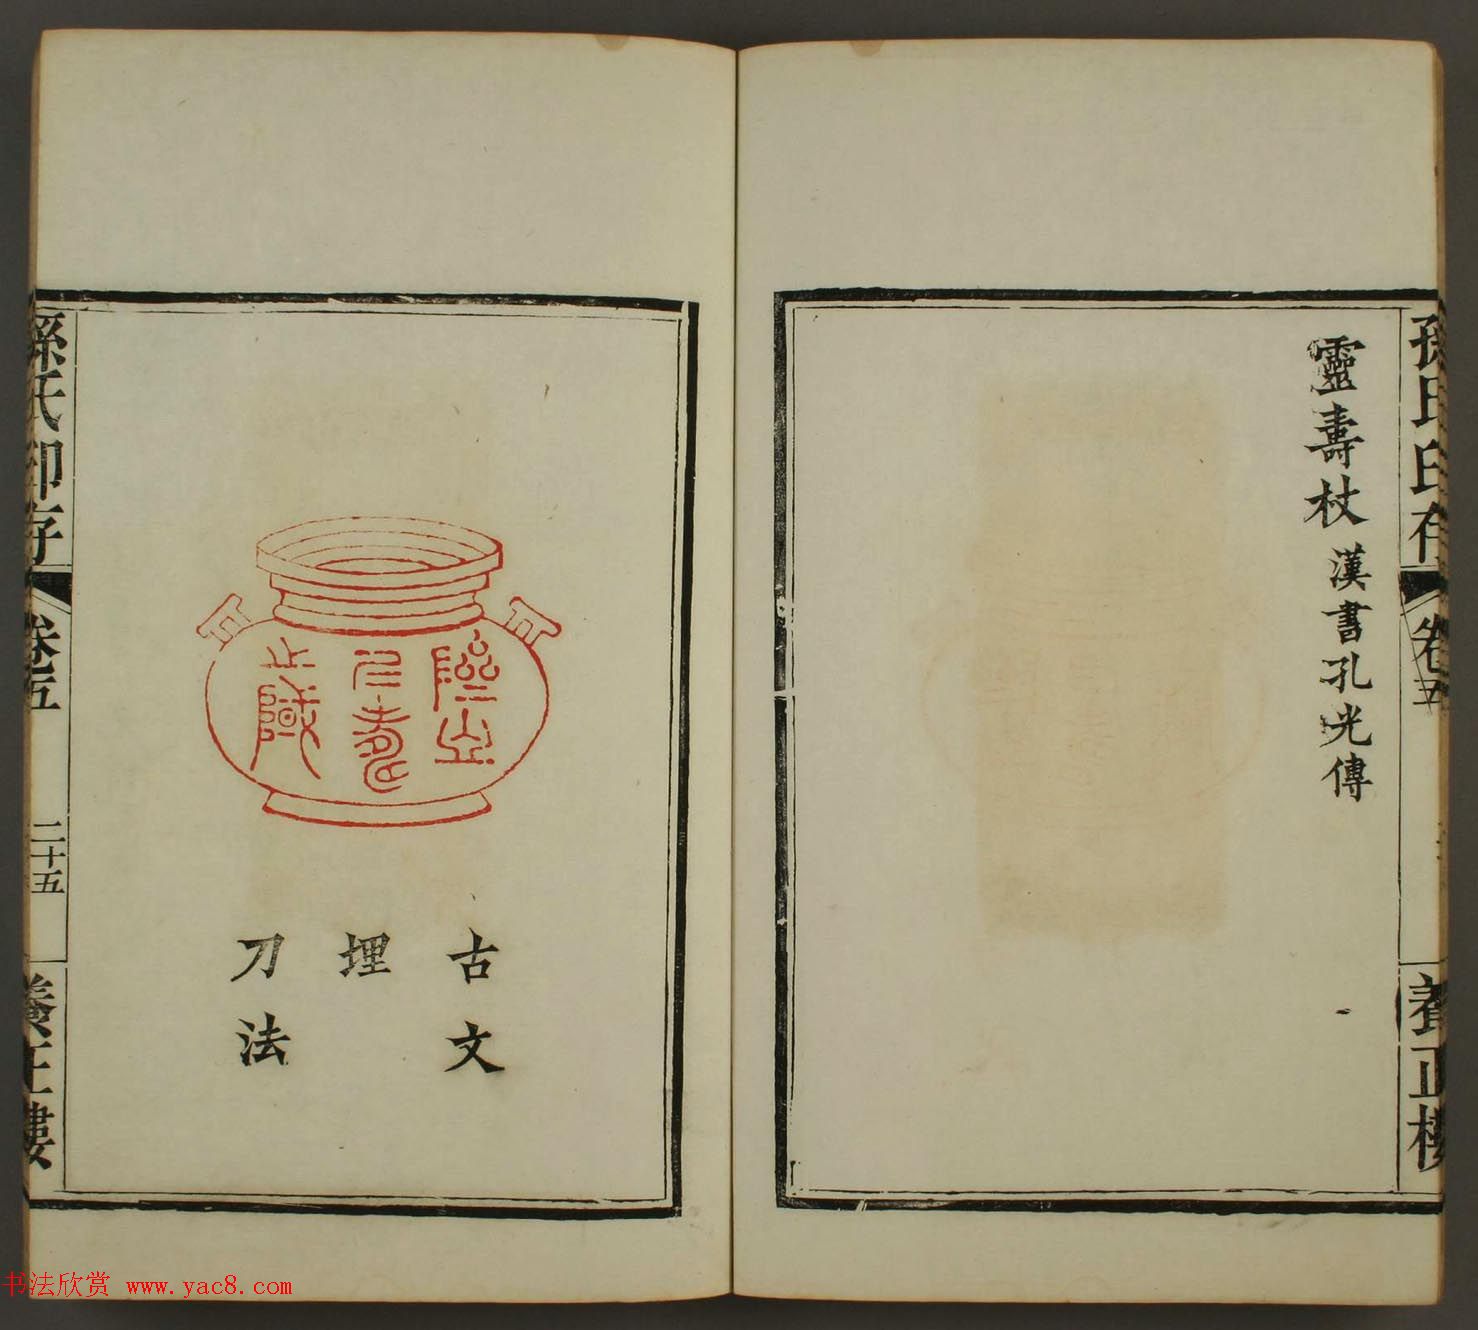 孫氏印存 卷五 養正樓
靈壽杖 漢書孔光傳
隮之
仁壽
之域
古文
埋
刀法
孫氏印存 卷五 二十五 養正樓
书法欣赏 www.yac8.com